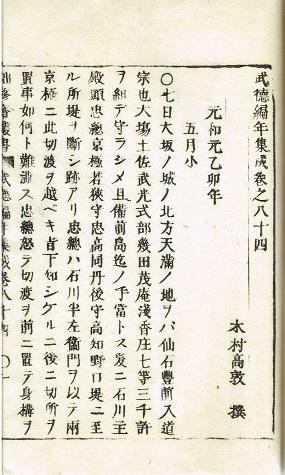 武徳編年集成巻之八十四
木村高敦 撰
元和元乙卯年
五月小
〇七日大坂ノ城ノ北方天満ノ地ヲバ仙石豊前入道
宗也大場土佐武光式部幾田茂庵浅香庄七等三千許
ヲ組デ守ラシメ且備前島迄ノ手當トス爰ニ石川主
殿頭忠總京極若狭守忠高同丹後守高知野口堤ニ至
ル所堤ヲ断シ跡アリ忠總ハ石川半左衞門ヲ以テ両
京極ニ此切渡ヲ越ベキ旨下知シケルニ後ニ切所ヲ
置事如何ト難澁ス忠總怒テ切渡ヲ前ニ置テ身構ヲ
武徳編年集成巻八十四